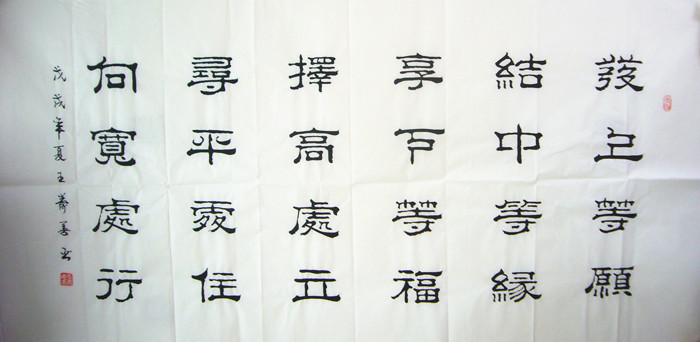 發上等願
結中等緣
享下等福
擇高處立
尋平處住
向寬處行
戊戌年夏王